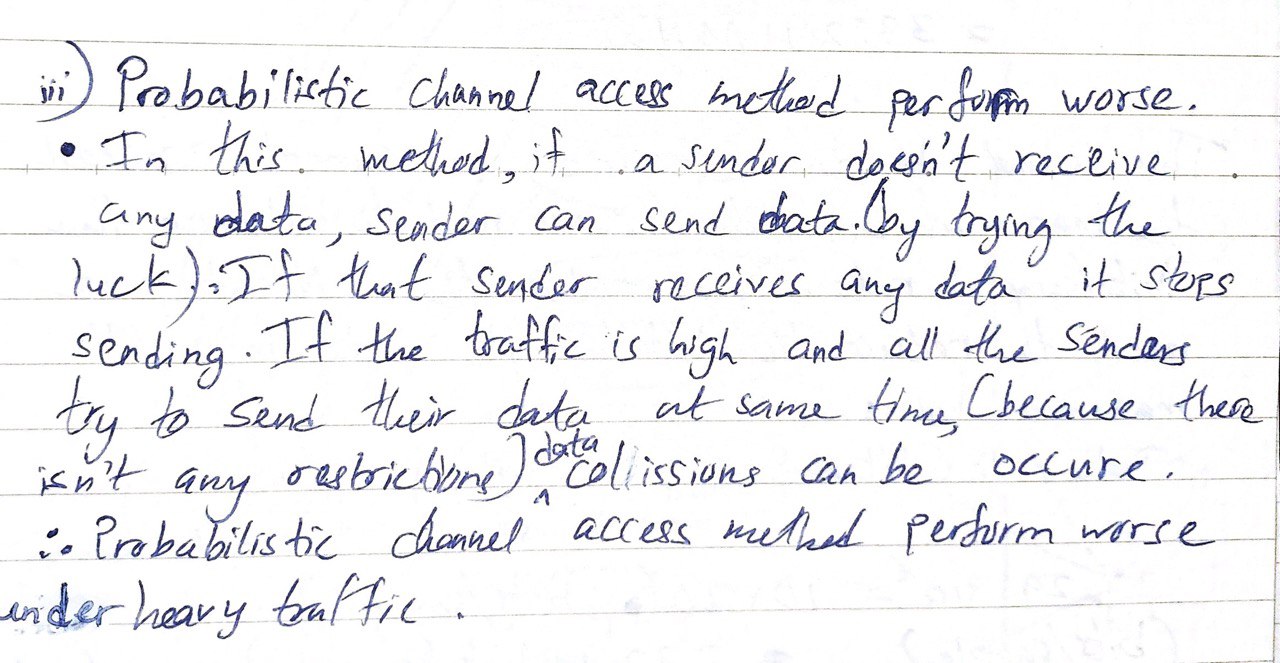 iii) Probabilistic channel access method perform worse.
• In this method, if a sender doesn't receive
any data, sender can send data. (by trying the
luck). If that sender receives any data it stops
sending. If the traffic is high and all the senders
try to send their data at same time, (because there
isn't any restrictions) data collissions can be occure.
∴ Probabilistic channel access method perform worse
under heavy traffic.